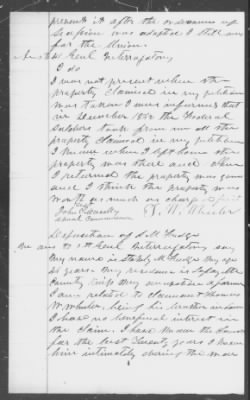 presents it after the ordinance of
Secession was adopted I still was
for the Union
Gen'l Interrogatory
I do
I was not present when the
property claimed in my petition
was taken I was informed that
in December 1862 the Federal
Soldiers took from me all the
property claimed in my petition
I know when I left home the
property was there and when
I returned the property was gone
and I think the property was
worth as much as charged
John Connolly T. W. Wheeler
Special Commissioner
Deposition of S. M. Fudge
In ans to 1st Genl Interrogatory say
My name is M. Fudge My age
years My residence is Lafayette
County Miss My occupation a farmer
I am related to claimant Thomas
W. Wheeler, being his brother in law
I have no beneficial interest in
the claim. I have known the claimant
for the last Twenty years I knew
him intimately during the war